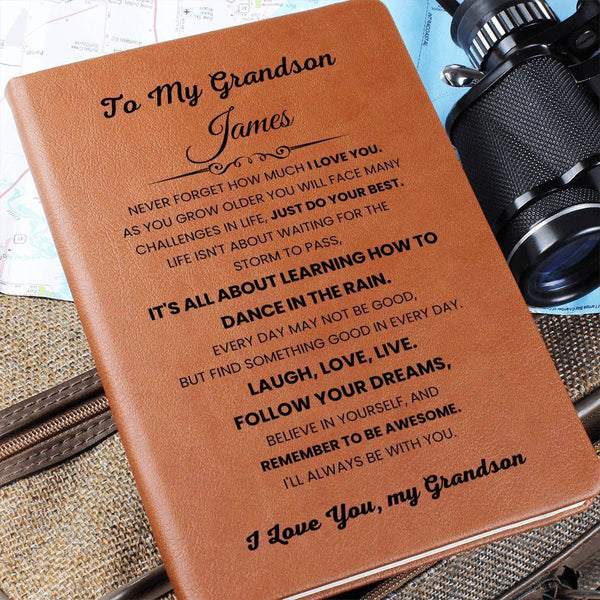 To My Grandson
James
NEVER FORGET HOW MUCH I LOVE YOU.
AS YOU GROW OLDER YOU WILL FACE MANY
CHALLENGES IN LIFE, JUST DO YOUR BEST.
LIFE ISN'T ABOUT WAITING FOR THE
STORM TO PASS,
IT'S ALL ABOUT LEARNING HOW TO
DANCE IN THE RAIN.
EVERY DAY MAY NOT BE GOOD,
BUT FIND SOMETHING GOOD IN EVERY DAY.
LAUGH, LOVE, LIVE.
FOLLOW YOUR DREAMS,
BELIEVE IN YOURSELF, AND
REMEMBER TO BE AWESOME.
I'LL ALWAYS BE WITH YOU.
I Love You, my Grandson